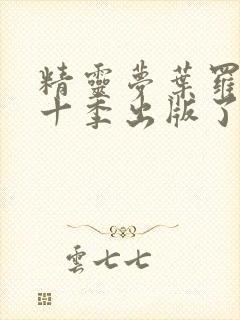 精靈夢葉羅
十季出版了
雲七七